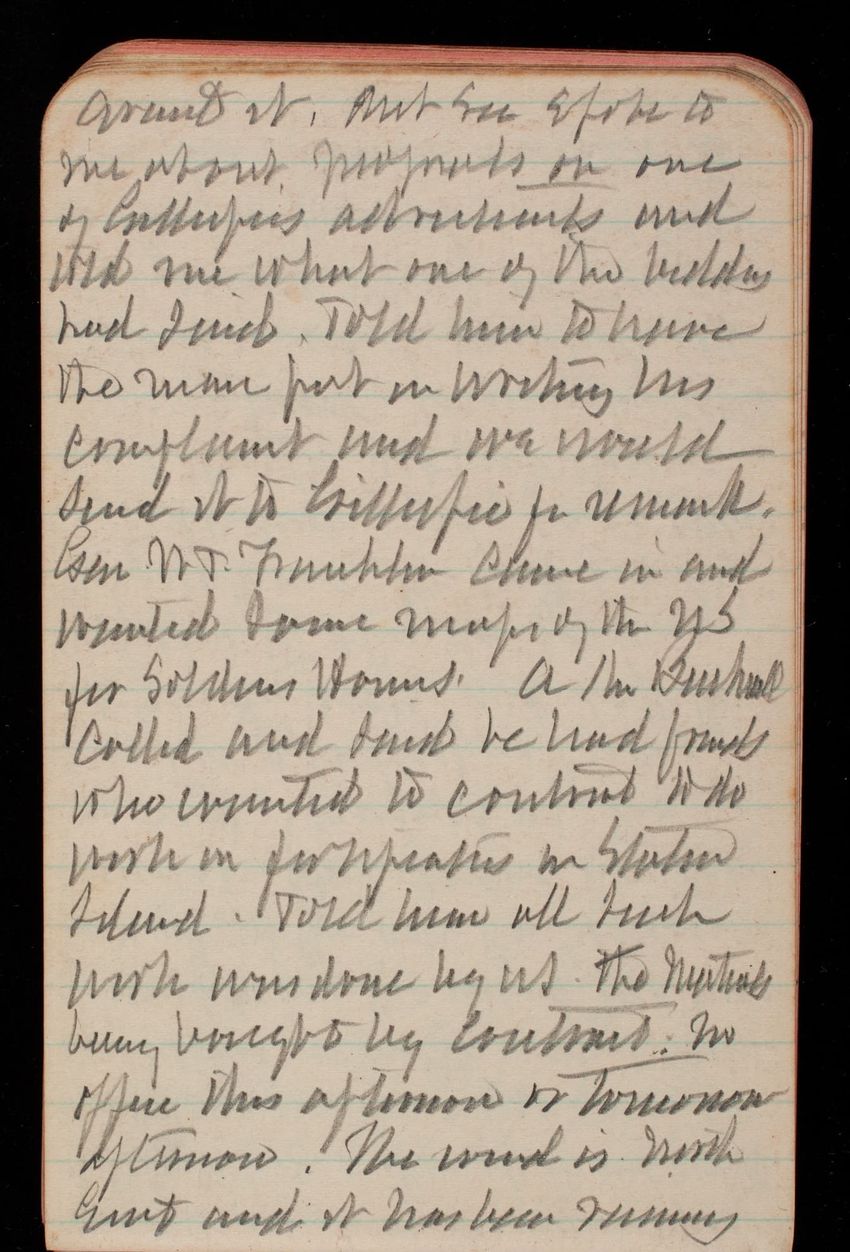 around it. But Sec spoke to
me about proposals on one
of Gillespies advertisements and
told me what one of the bidders
had said. Told him to have
the man put in writing his
complaint and we would
send it to Gillespie for remark.
Gen W. F. Franklin came in and
wanted some maps of the US
for Soldiers Homes. A Mr
Called and said he had friends
who wanted to contract to do
work on fortifications on Staten
Island. Told him all such
work was done by us. the materials
being bought by Contract. No
office this afternoon or tomorrow
afternoon. The wind is North
East and it has been raining